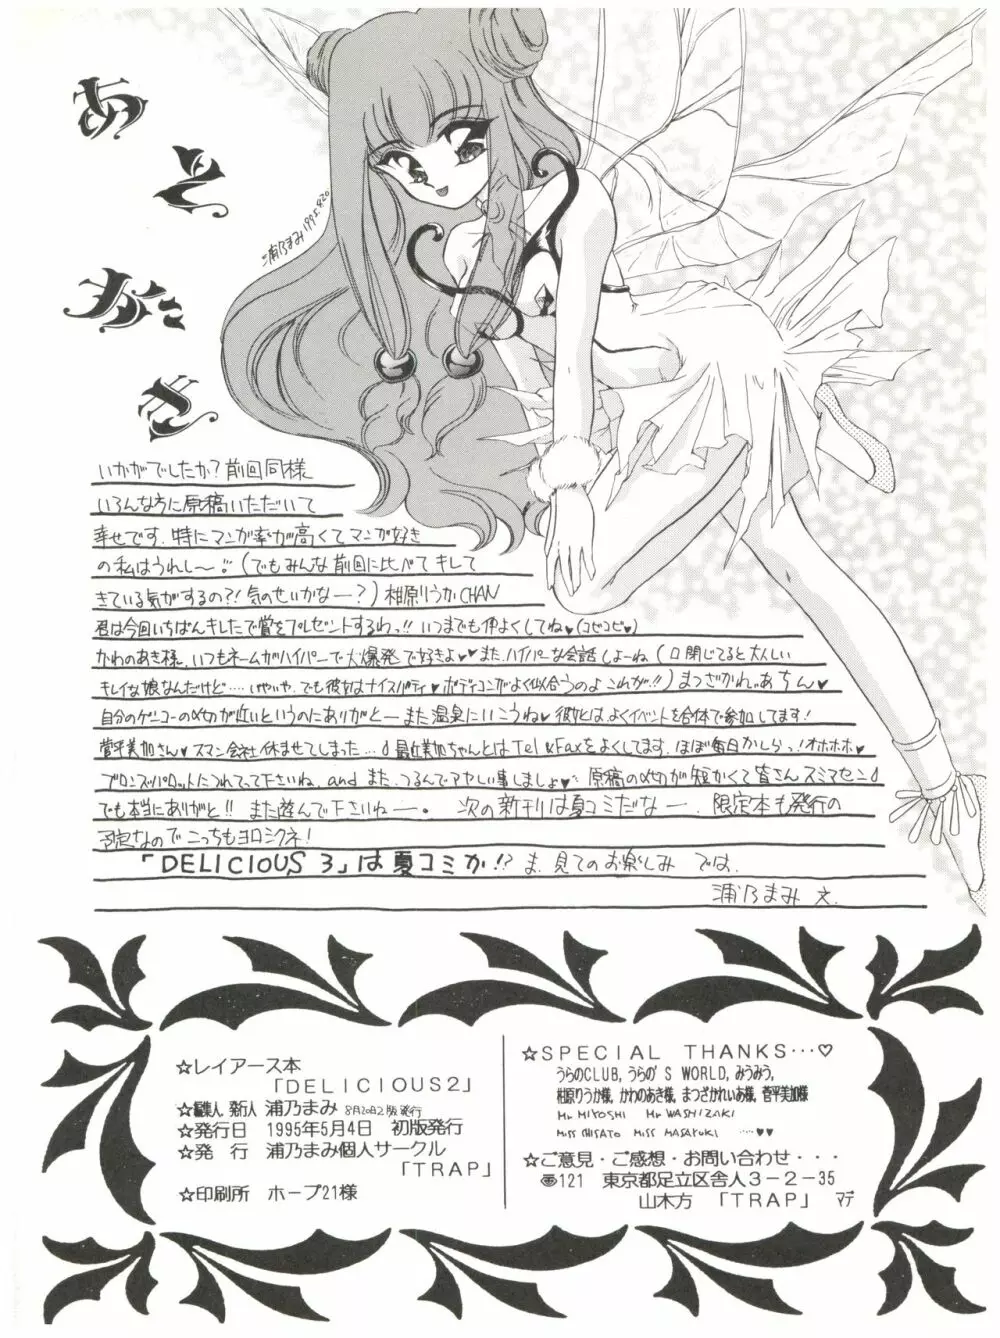 あとがき
浦乃まみ 1995.4.20
いかがでしたか？前回同様
いろんな方に原稿いただいて
幸せです。特にマンガ率が高くてマンガ好き
の私はうれし〜 (でもみんな前回に比べてキレて
きている気がするの?! 気のせいかなー？) 相原りうかCHAN
君は今回いちばんキレたで賞をプレゼントするわっ!! いつまでも仲よくしてね♥(コピコピ♥)
かわのあき様、いつもネームがハイパーで大爆発で好きよ♥♥また、ハイパーな会話しよーね (口閉じてると大人しい
キレイな娘なんだけど…いやいや、でも彼女はナイスバディ♥ボディコンがよく似合うのよこれが!!) まつざかれいあちん♥
自分のゲンコーの〆切が近いというのにありがとーまた温泉にいこうね♥彼女とは、よくイベントを合体で参加してます！
菅平美加さん♥スマン会社休ませてしまった…♪最近美加ちゃんとはTel&Faxをよくしてます。ほぼ毎日かしらっ！オホホホ♥
ブロンズパロットにつれてって下さいね、and また、つるんでアヤしい事しましょ♥ 原稿の〆切が短かくて皆さんスミマセン♪
でも本当にありがと!! また遊んで下さいねー。 次の新刊は夏コミだなー、限定本も発行の
予定なのでこっちもヨロシクネ！
「DELICIOUS 3」は夏コミか!? ま、見てのお楽しみ では、
浦乃まみ
☆レイアース本
「DELICIOUS2」
☆編集人 発行人 浦乃まみ 8月20日2版発行
☆発行日 1995年5月4日 初版発行
☆発 行 浦乃まみ個人サークル
「TRAP」
☆印刷所 ホープ21様
☆SPECIAL THANKS…♡
うらのCLUB, うらの'S WORLD, みうみう,
相原りうか様, かわのあき様, まつざかれいあ様, 菅平美加様
Mr MIYOSHI Mr WASHIZAKI
Miss CHISATO Miss MASAYUKI ……♥♥
☆ご意見・ご感想・お問い合わせ・・・
〠121 東京都足立区舎人3-2-35
山木方 「TRAP」 マデ